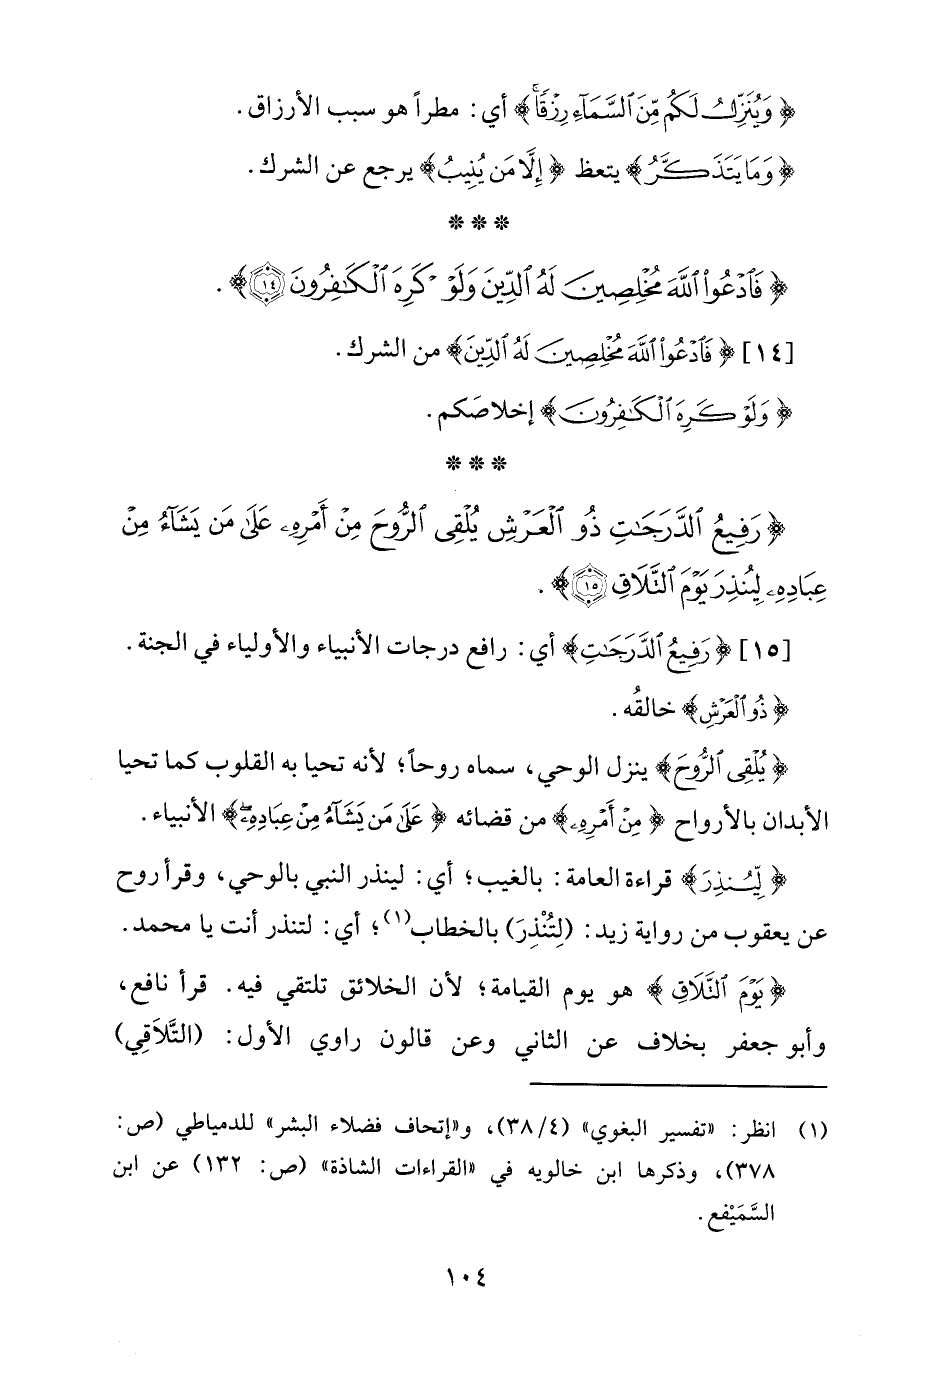 ﴿وَيُنَزِّلُ لَكُم مِّنَ ٱلسَّمَآءِ رِزْقًاۚ﴾ أي: مطراً هو سبب الأرزاق.
﴿وَمَا يَتَذَكَّرُ﴾ يتعظ ﴿إِلَّا مَن يُنِيبُ﴾ يرجع عن الشرك.
* * *
﴿فَٱدْعُوا۟ ٱللَّهَ مُخْلِصِينَ لَهُ ٱلدِّينَ وَلَوْ كَرِهَ ٱلْكَٰفِرُونَ ١٤﴾.
[١٤] ﴿فَٱدْعُوا۟ ٱللَّهَ مُخْلِصِينَ لَهُ ٱلدِّينَ﴾ من الشرك.
﴿وَلَوْ كَرِهَ ٱلْكَٰفِرُونَ﴾ إخلاصَكم.
* * *
﴿رَفِيعُ ٱلدَّرَجَٰتِ ذُو ٱلْعَرْشِ يُلْقِى ٱلرُّوحَ مِنْ أَمْرِهِۦ عَلَىٰ مَن يَشَآءُ مِنْ
عِبَادِهِۦ لِيُنذِرَ يَوْمَ ٱلتَّلَاقِ ١٥﴾.
[١٥] ﴿رَفِيعُ ٱلدَّرَجَٰتِ﴾ أي: رافع درجات الأنبياء والأولياء في الجنة.
﴿ذُو ٱلْعَرْشِ﴾ خالقُه.
﴿يُلْقِى ٱلرُّوحَ﴾ ينزل الوحي، سماه روحاً؛ لأنه تحيا به القلوب كما تحيا
الأبدان بالأرواح ﴿مِنْ أَمْرِهِۦ﴾ من قضائه ﴿عَلَىٰ مَن يَشَآءُ مِنْ عِبَادِهِۦ﴾ الأنبياء.
﴿لِيُنذِرَ﴾ قراءة العامة: بالغيب؛ أي: لينذر النبي بالوحي، وقرأ روح
عن يعقوب من رواية زيد: (لِتُنْذِرَ) بالخطاب(١)؛ أي: لتنذر أنت يا محمد.
﴿يَوْمَ ٱلتَّلَاقِ﴾ هو يوم القيامة؛ لأن الخلائق تلتقي فيه. قرأ نافع،
وأبو جعفر بخلاف عن الثاني وعن قالون راوي الأول: (التَّلاَقِي)
(١) انظر: «تفسير البغوي» (٤/ ٣٨)، و«إتحاف فضلاء البشر» للدمياطي (ص:
٣٧٨)، وذكرها ابن خالويه في «القراءات الشاذة» (ص: ١٣٢) عن ابن
السَّمَيْفع.
١٠٤